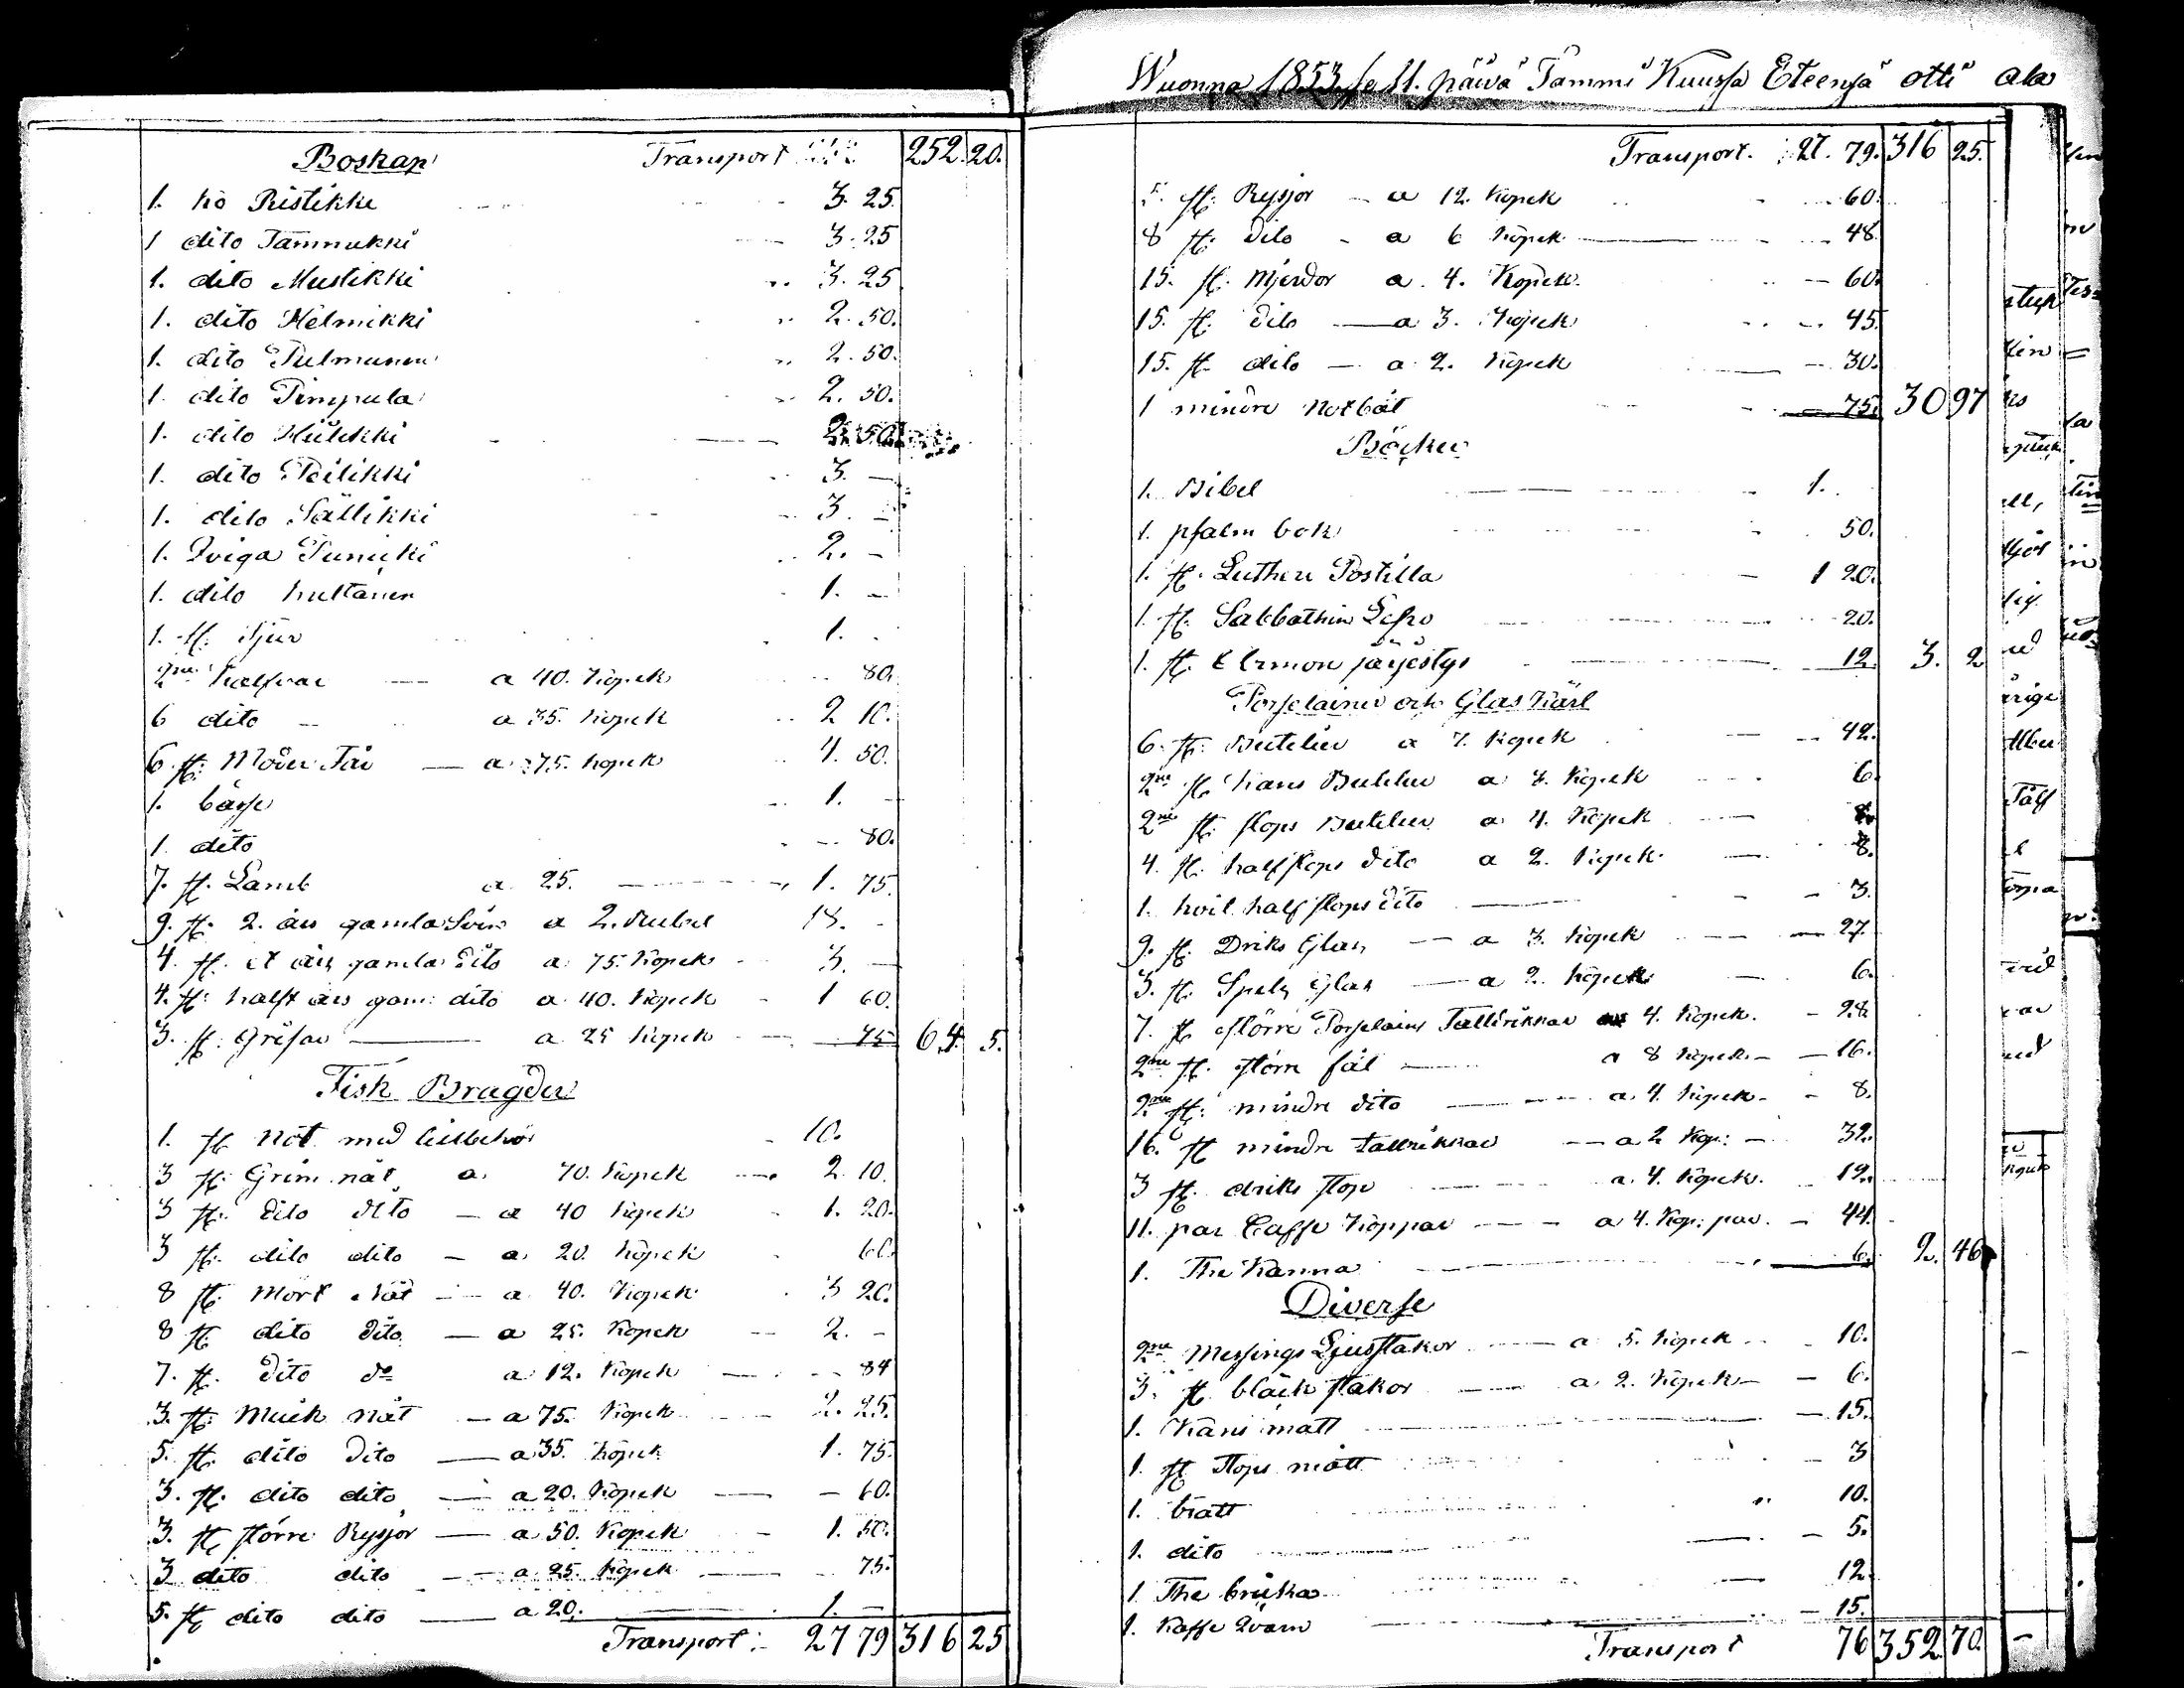 Boskap Transport 252 20.
1. ko Ristikki 3. 25.
1 dito Tammikki 3. 25
1. dito Mustikki 3. 25
1. dito Helmikki 2. 50.
1. dito Pulmunen 2. 50.
1. dito Pimpula 2. 50.
1. dito Hülikki 2. 50.
1. dito Teilikki 3. —
1. dito Sällikki 3. —
1. Qviga Punicki 2. —
1. dito 1. —
1. st. tjur 1. -
2ne kalfvar — a 40. Kopek 80.
6 dito — a 35. Kopek 2 10.
6. st. Möder får — a 75. kopek 4. 50.
1. bässe 1. —
1. dito 80.
7. st. Lamb a 25. — 1. 75.
9. st. 2. års gamla Svin a 2. Rubel 18. -
4. st. et års gamla dito a 75. Kopek 3. —
4. st. halft års gam: dito a 40. Kopek 1 60.
3. st. Grisar — a 25 Kopek 75 64. 5.
Fisk Bragder
1. st Not med tillbehör 10.
3 st. Grim nät a 70. Kopek — 2 10.
3 st. dito dito — a 40 Kopek 1. 20.
3 st. dito dito — a 20. Kopek 60.
8 st. Mört Nät — a 40. Kopek 3 20.
8 st. dito dito — a 25. Kopek — 2. -
7. st. dito do a 12. Kopek — 84
3. st. Muik nät — a 75. Kopek 2. 25.
5. st. dito dito — a 35. Kopek 1. 75.
3. st. dito dito — a 20. Kopek — 60.
3. st. större Rysjor — a 50. Kopek - 1. 50.
3 dito dito — a 25. Kopek — 75.
5. st dito dito — a 20. — 1. —
Transport: 27 79 316 25
Wuonna 1853. se 11. päivä Tammi Kuussa Eteensä otti ala
Transport. 27. 79. 316 25.
5. st. Rysjor — a 12. Kopek 60.
8 st. dito - a 6 Kopek — 48.
15. st. Mjerdor a 4. Kopek. — 60.
15. st. dito — a 3. Kopek 45.
15. st dito — a 2. Kopek — 30.
1 mindre Notbåt — 75. 30 97
Böcker
1. Bibel — 1.
1. psalm bok 50.
1. st. Lutheri Postilla — 1 20.
1. st. Sabbathin Lepo 20.
1. st. Armon järjestys 12 3. 2
Porselainer och Glas Kärl
6. st. Butelier a 7. Kopek — 42.
2ne st. kans Butelier a 3. Kopek 6.
2ne st. stops Butelier a 4. Kopek — 8.
4. st. halfstops dito a 2. Kopek — 8.
1. hvit halfstops dito — 3.
9. st. Driks Glas — a 3. Kopek — 27.
3. st. Spets Glas — a 2 Kopek — 6.
7. st större Porselains Tallrikkar a 4. Kopek. - 28.
2ne st. större fat — a 8 Kopek - — 16.
2ne st. mindre dito — a 4. Kopek - 8.
16. st mindre tallrikkar — a 2 Kop: — 32.
3 st. driks stop — a 4. Kopek. 12.
11. par Caffe Koppar — a 4. Kop: par. — 44.
1. The Kanna — 6. 2. 46
Diverse
2ne Messings Ljusstakor — a 5. Kopek 10.
3. st. bläck stakor — a 2. Kopek — 6.
1. Kans mått — 15.
1. st Stops mått — 3
1. bratt 10.
1. dito — 5.
1 The bricka — 12.
1. Kaffe Qvarn — 15.
Transport 76 352 70.